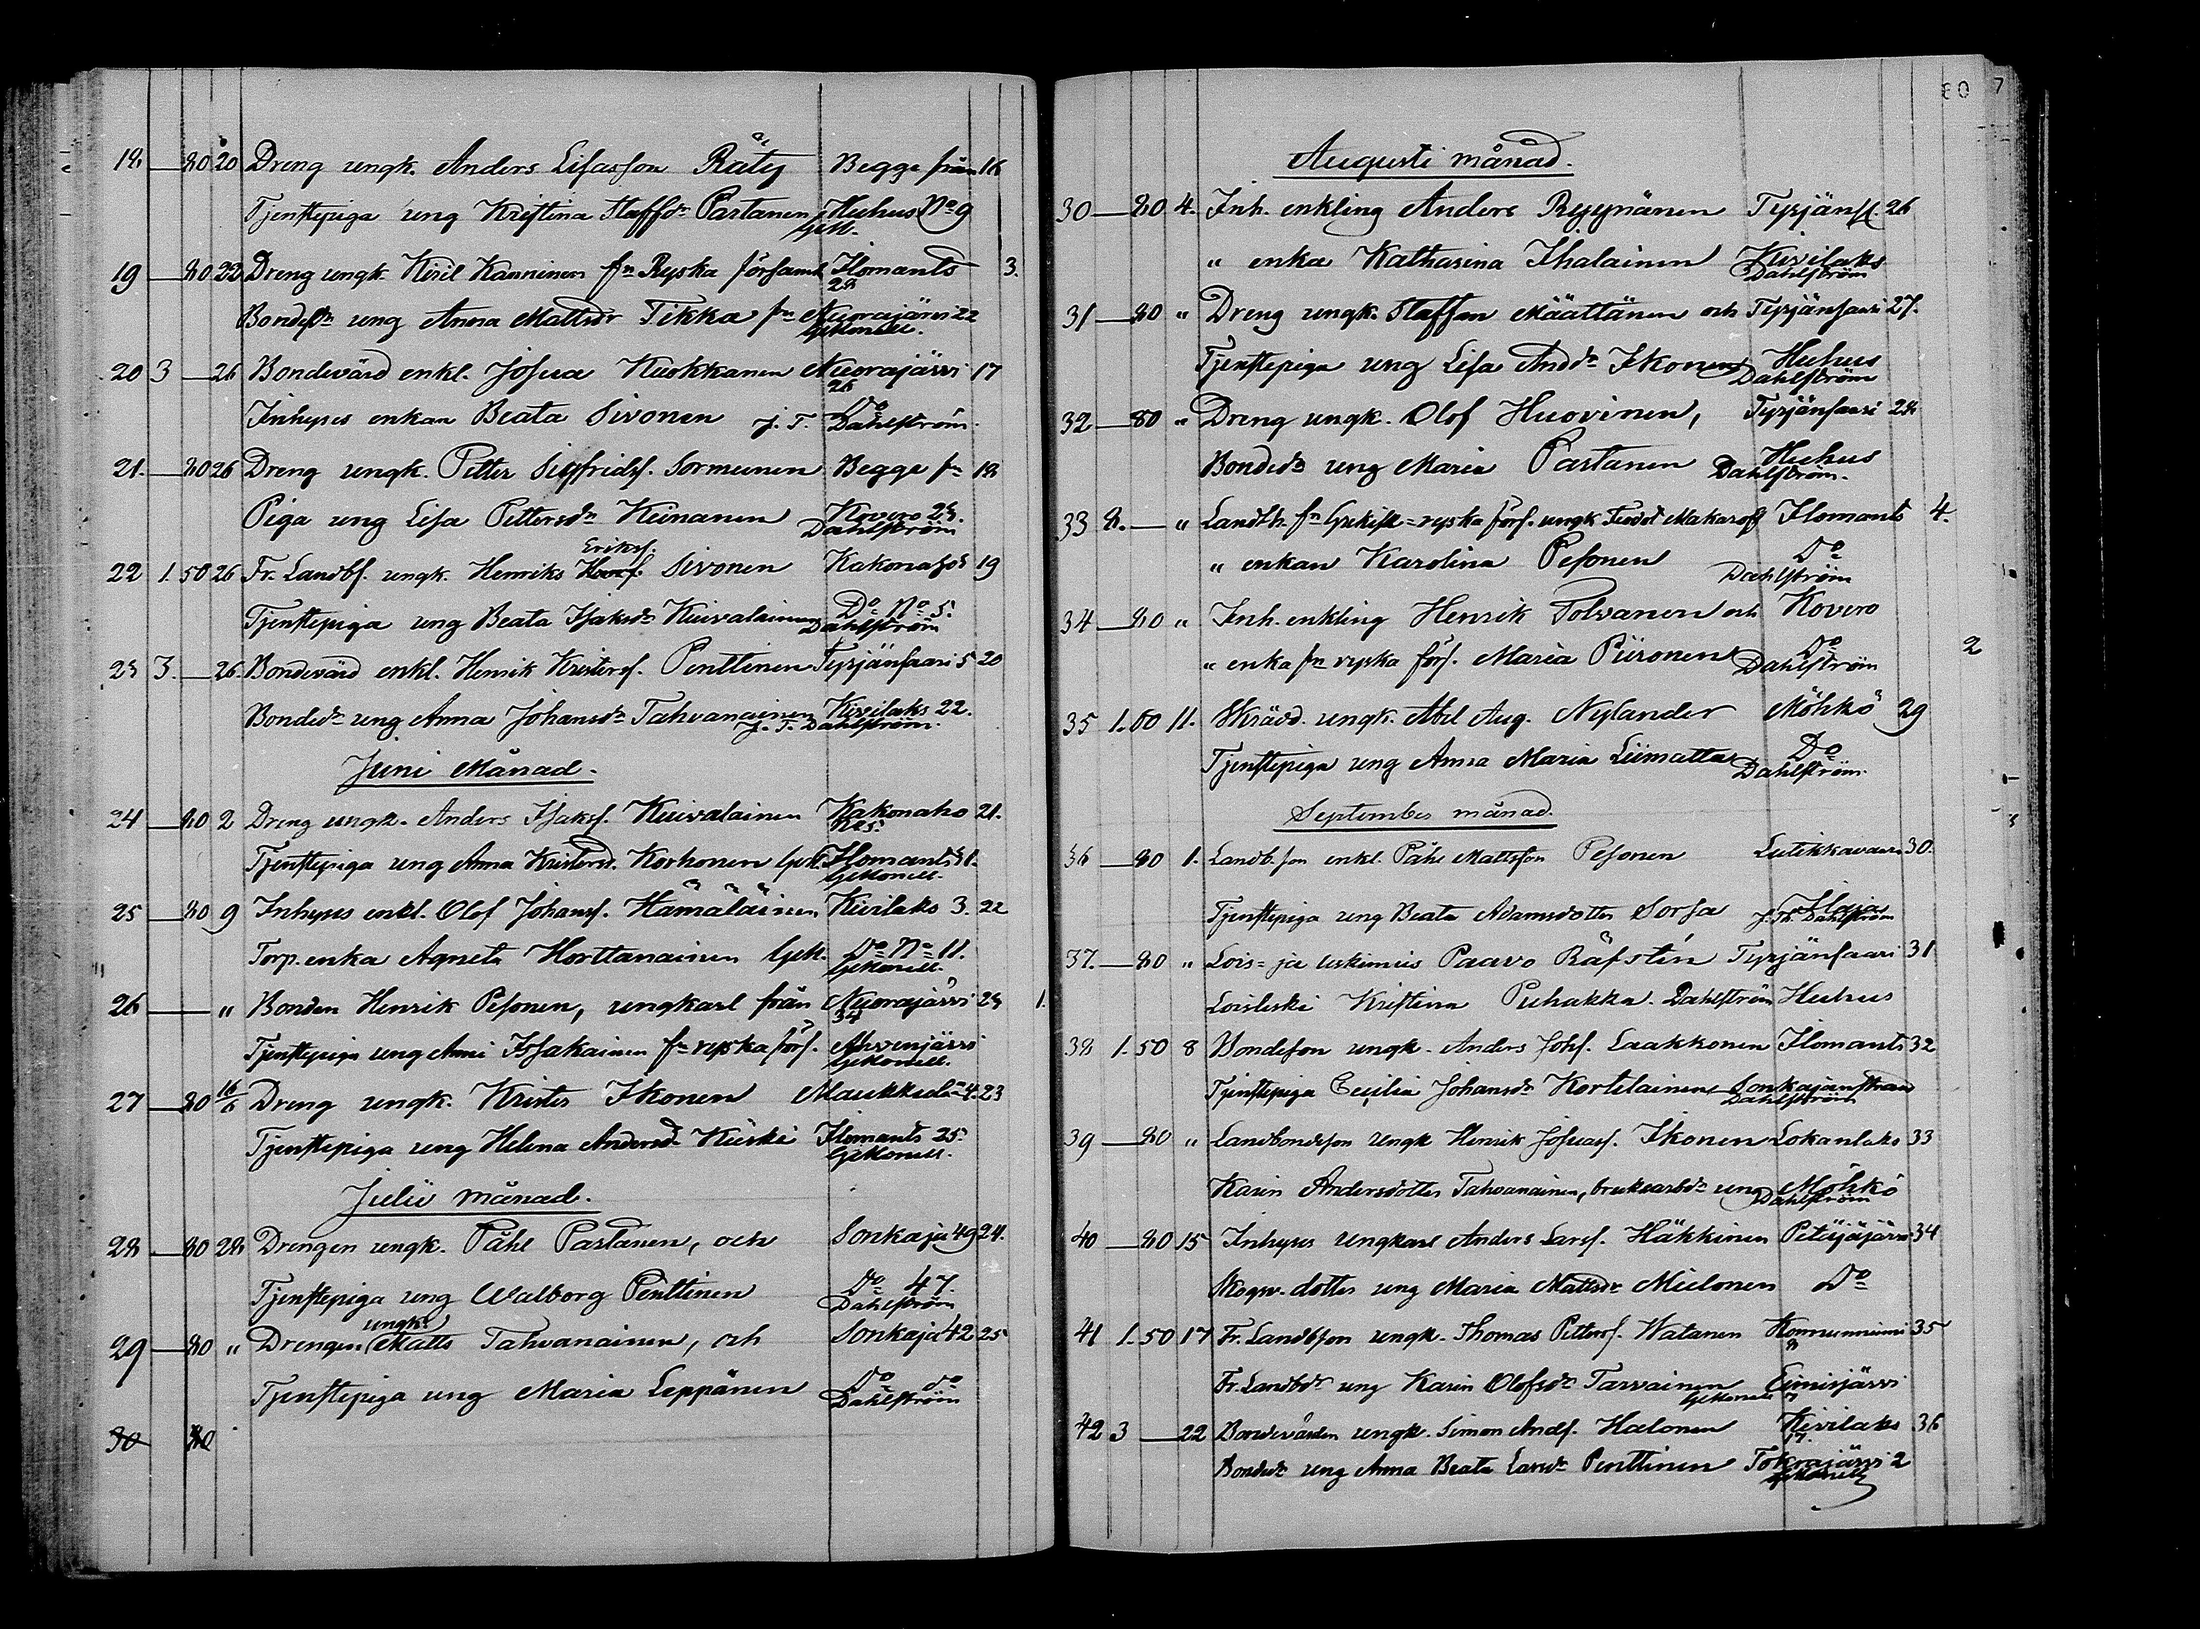 18 — 80 20 Dreng ungk. Anders Lisasson Räty Begge från 16
Tjenstepiga ung Kristina Staffdr Partanen Huhus No 9
19 — 80 22 Dreng ungk. Kiril Kanninen fn Ryska församl. Ilomants 3.
28
Bondedr ung Anna Mattsdr Tikka fn Nuorajärvi 22
20 3 — 26 Bondevärd enkl. Josua Kuokkanen Nuorajärvi 17
26
Inhyses enkan Beata Sivonen J. T. Do Dahlström.
21. — 80 26 Dreng ungk. Petter Sigfridsf. Sormunen Begge fn 18
Piga ung Lisa Pettersdr Keinanen Kovero 28.
Dahlström
Eriksf.
22 1. 50 26 Fr. Landbf. ungk. Henriks Sivonen Kakonaho 5 19
Tjenstepiga ung Beata Isaksdr Kuivalainen Do No 5.
Dahlström
23 3. — 26. Bondevärd enkl. Henrik Kristersf. Penttinen Tyrjänsaari 5 20
Bondedr ung Anna Johansdr Tahvanainen Kivilaks 22.
J. T. Dahlström.
Juni Månad.
24 — 80 2 Dreng ungk. Anders Isaksf. Kuivalainen Kakonaho 21.
No 5.
Tjenstepiga ung Anna Kristersd. Korhonen Ilomants 31.
25 — 80 9 Inhyses enkl. Olof Johansf. Hämäläinen Kivilaks 3. 22
Torp. enka Agneta Horttanainen Do No 11.
26 — " Bonden Henrik Pesonen, ungkarl från Nuorajärvi 23 1.
34
Tjenstepiga ung Anni Issakainen fn ryska förf. Ahvenjärvi
27 — 80 16/6 Dreng ungk. Krister Ikonen Maukkula 4. 23
Tjenstepiga ung Helena Andersdr Kiiski Ilomants 25.
Julii månad.
28 — 80 28 Drengen ungk. Påhl Partanen, och Sonkaja 49 24.
Tjenstepiga ung Walborg Penttinen Do 47.
Dahlström
ungk.
29 — 80 " Drengen Matts Tahvanainen, och Sonkaja 42 25
Tjenstepiga ung Maria Leppänen Do do
Dahlström
30 80
80 7
Augusti månad.
30 — 80 4. Inh. enkling Anders Ryynänen Tyrjäns. 26
" enka Katharina Ihalainen Kivilaks
Dahlström
31 — 80 " Dreng ungk. Staffan Määttänen och Tyrjänsaari 27.
Tjenstepiga ung Lisa Anddr Ikonen Huhus
Dahlström
32 — 80 " Dreng ungk. Olof Huovinen, Tyrjänsaari 28
Bondedr ung Maria Partanen Huhus
Dahlström.
33 8. — " Landth. fn Grekisk=ryska förf. ungk. Feodot Makaroff Ilomants 4.
" enkan Karolina Pesonen Do
Dahlström
34 — 80 " Inh. enkling Henrik Polvanen och Kovero
" enka fn ryska förf. Maria Piironen Do 2
Dahlström
35 1. 60 11. Skrädd. ungk. Abel Aug. Nylander Möhkö 29
Tjenstepiga ung Anna Maria Liimatta Do
Dahlström.
September månad.
36 — 80 1. Landb. son enkl. Påhl Mattsson Pesonen Lutikkavaara 30.
Tjenstepiga ung Beata Adamsdotter Sorsa
J. Th. Dahlström
37. — 80 " Lois= ja leskimies Paavo Räfstén Tyrjänsaari 31
Loisleski Kristina Puhakka. Dahlström Huhus
38 1. 50 8 Bondeson ungk. Anders Johf. Laakkonen Ilomants 32
Tjenstepiga Cecilia Johansdr Kortelainen
Dahlström
39 — 80 " Landbondeson ungk. Henrik Josuasf. Ikonen Lokanlaks 33
Karin Andersdotter Tahvanainen, bruksarbdr ung Möhkö
Dahlström
40 — 80 15 Inhyses ungkarl Anders Larsf. Häkkinen Petäjäjärvi 34
Skogv. dotter ung Maria Mattsdr Mielonen Do
41 1. 50 17 Fr. Landbson ungk. Thomas Pettersf. Watanen Konnunniemi 35
8
Fr. Landbdr ung Karin Olofsdr Tarvainen Eimisjärvi
42 3 — 22 Bondevärden ungk. Simon Andf. Halonen Kivilaks 36
17.
Bondedr ung Anna Beata Larsdr Penttinen Tokrajärvi 2